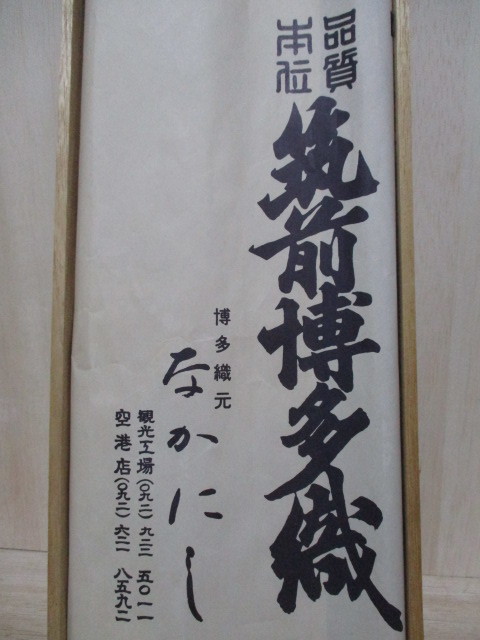 品質
本位
筑前博多織
博多織元
なかにし
観光工場(〇九二)九二二 五〇一一
空港店(〇九二)六二一 八五九二